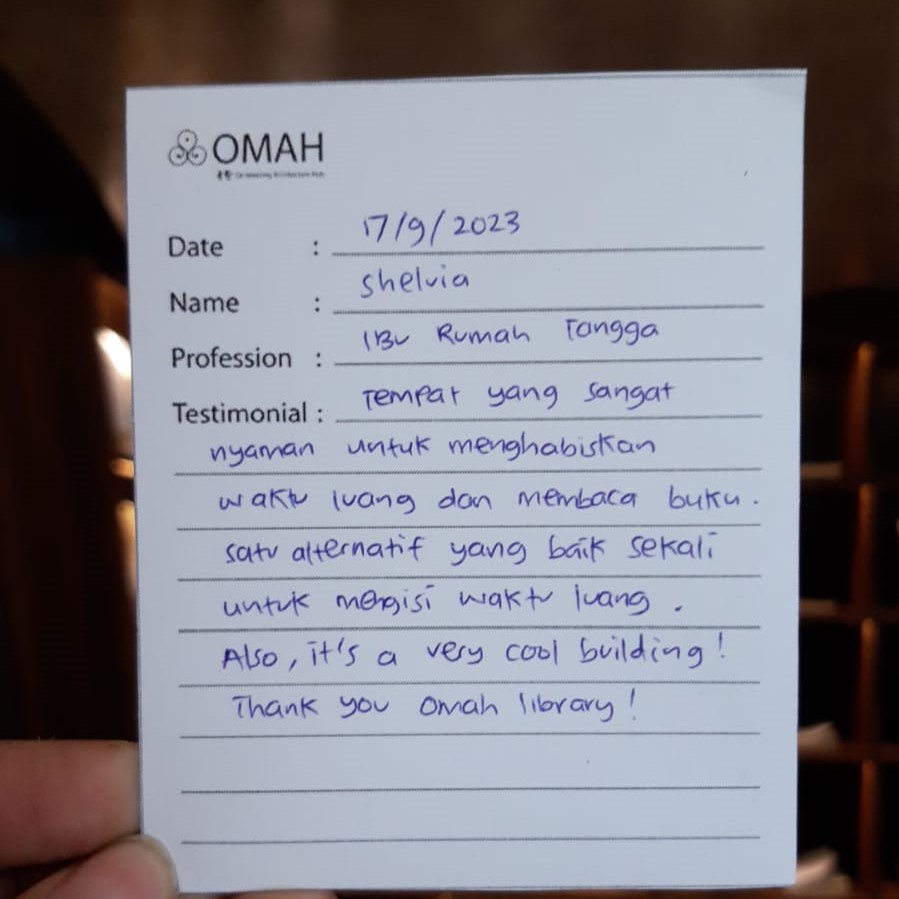 OMAH
Date : 17/9/2023
Name : Shelvia
Profession : IBU Rumah Tangga
Testimonial : Tempat yang sangat
nyaman untuk menghabiskan
waktu luang dan membaca buku.
satu alternatif yang baik sekali
untuk mengisi waktu luang.
Also, it's a very cool building!
Thank you Omah library!